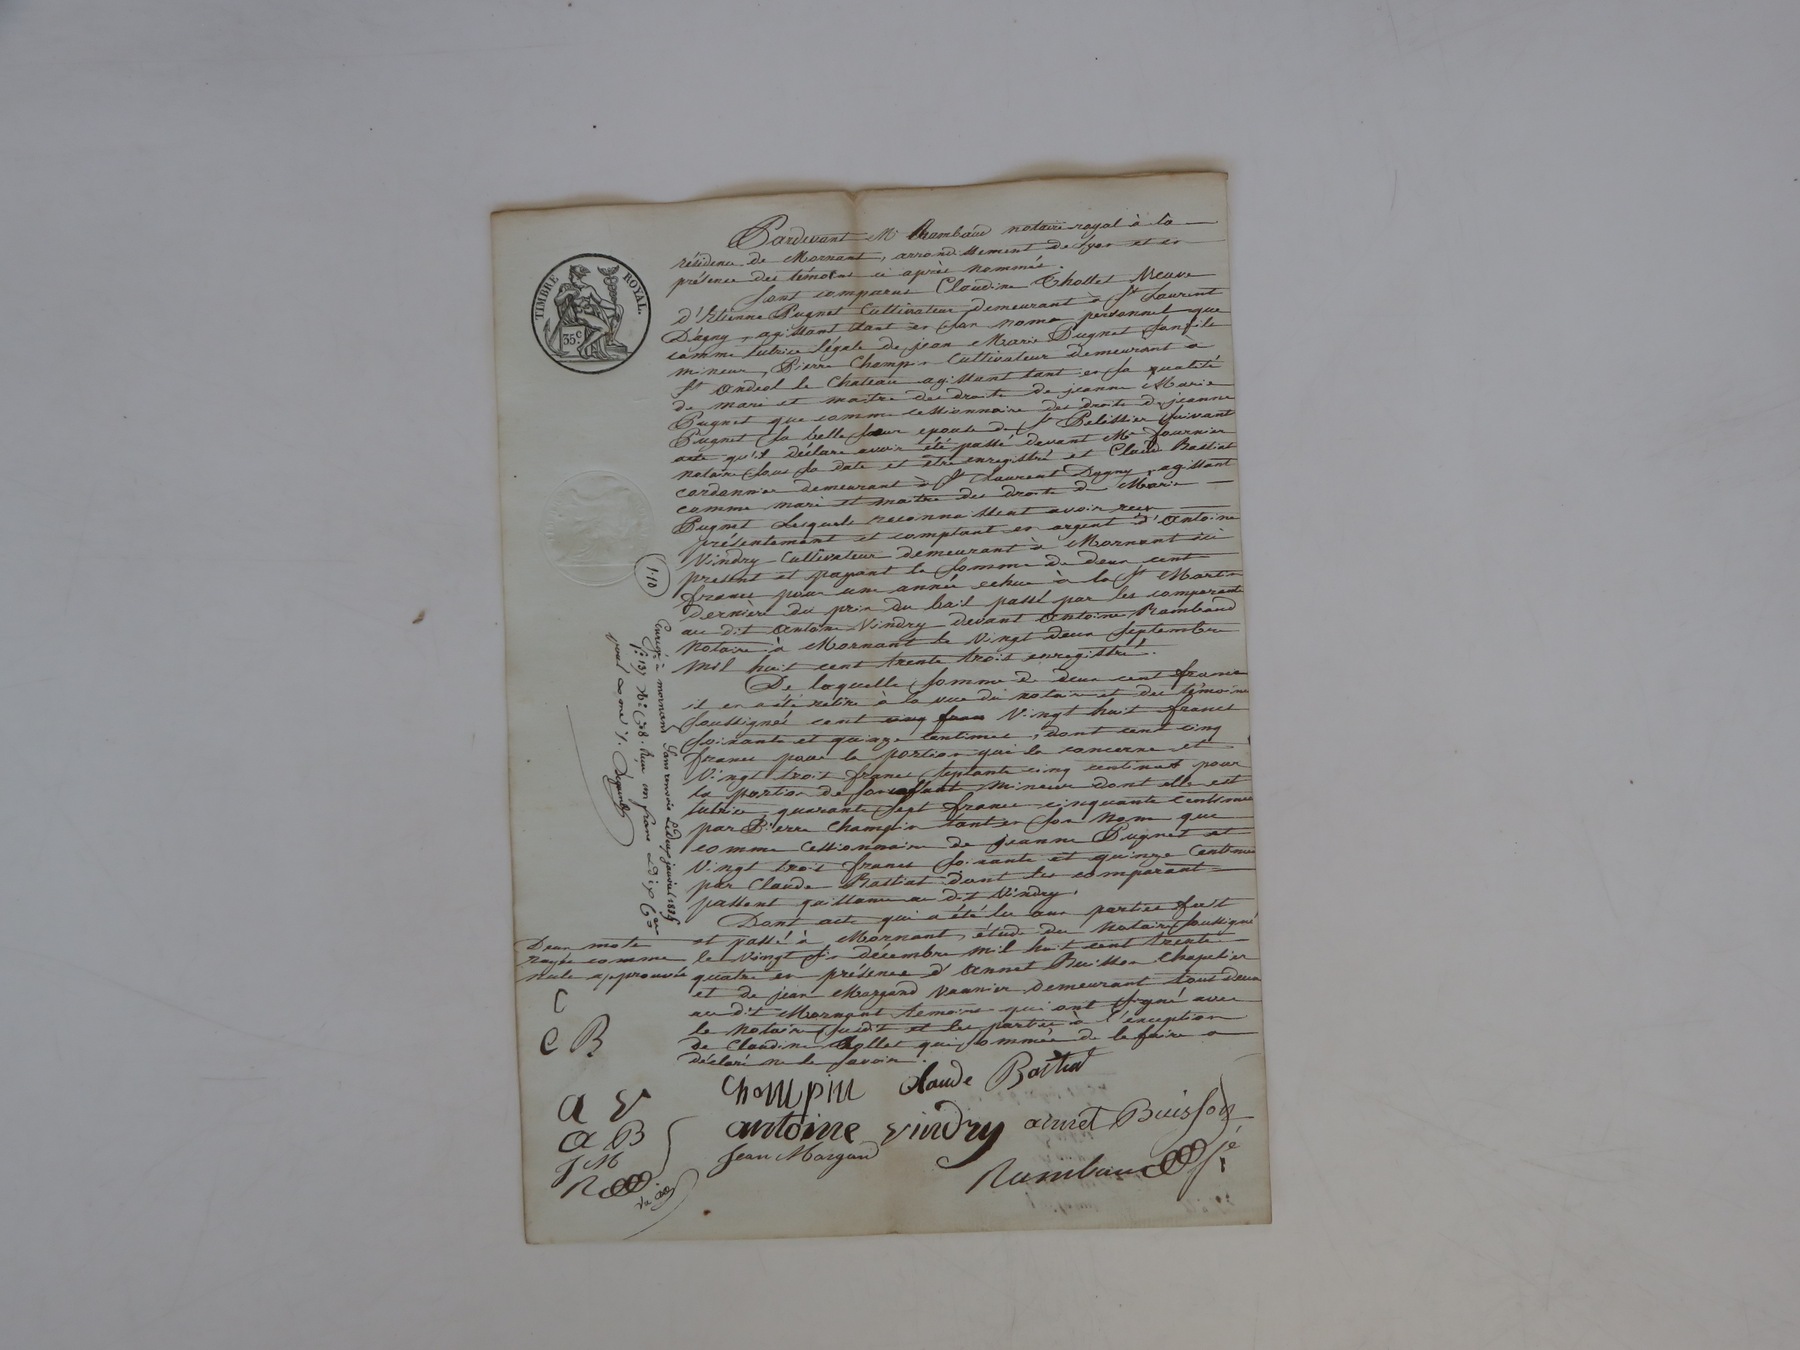 TIMBRE ROYAL.
35c
Pardevant Me Rambaud notaire royal à la
résidence de Mornant, arrondissement de Lyon et en
présence des témoins ci après nommés.
Sont comparus Claudine Thollet Veuve
d'Etienne Pugnet Cultivateur demeurant à St Laurent
D'agny, agissant tant en son nom personnel que
comme tutrice légale de jean Marie Pugnet son fils
mineur, Pierre Champin Cultivateur demeurant à
St Andéol le Chateau agissant tant en sa qualité
de mari et maitre des droits de jeanne Marie
Pugnet que comme cessionnaire des droits de jeanne
Pugnet sa belle soeur epouse de St Pelissier suivant
acte qu'il déclare avoir été passé devant Me fournier
notaire sous sa date et être enregistré et Claude Bastiat
cordonnier demeurant à St Laurent Dagny, agissant
comme mari et maitre des droits de Marie
Pugnet Lesquels reconnaissent avoir reçu
présentement et comptant en argent d'Antoine
Vindry Cultivateur demeurant à Mornant ici
présent et payant la somme de deux cent
francs pour une année echue à la St Martin
dernière du prix du bail passé par les comparants
au dit Antoine Vindry devant Antoine Rambaud
notaire à Mornant le vingt deux septembre
mil huit cent trente trois enregistré.
De laquelle somme de deux cent francs
il en a été retiré à la vue du notaire et des témoins
soussignés cent cinq francs vingt huit francs
soixante et quinze centimes, dont cent cinq
francs pour la portion qui la concerne et
Vingt trois francs septante cinq centimes pour
la portion de son enfant mineur dont elle est
tutrice quarante sept francs cinquante centimes
par Pierre Champin tant en son nom que
comme Cessionnaire de jeanne Pugnet et
Vingt trois francs soixante et quinze centimes
par Claude Bastiat dont les comparant
passent quittance au dit Vindry.
Dont acte qui a été lu aux parties fait
et passé à Mornant, étude du Notaire soussigné
le Vingt six décembre mil huit cent trente
quatre en présence d'Annet Buisson Chapelier
et de jean Margand Vannier demeurant tous deux
au dit Mornant témoins qui ont signé avec
le notaire susdit et les parties à l'exception
de Claudine Thollet qui sommée de le faire a
déclaré ne le savoir.
1.10
Enregé à mornant sans renvoi Le deux janvier 1835
fo 137 Ro Cse 8. Reçu un franc
Deux mots
rayés comme
nuls approuvés
C
C B
a v
a B
J M
R
Champin Claude Bastiat
antoine vindry annet Buisson
Jean Margand
Rambaud